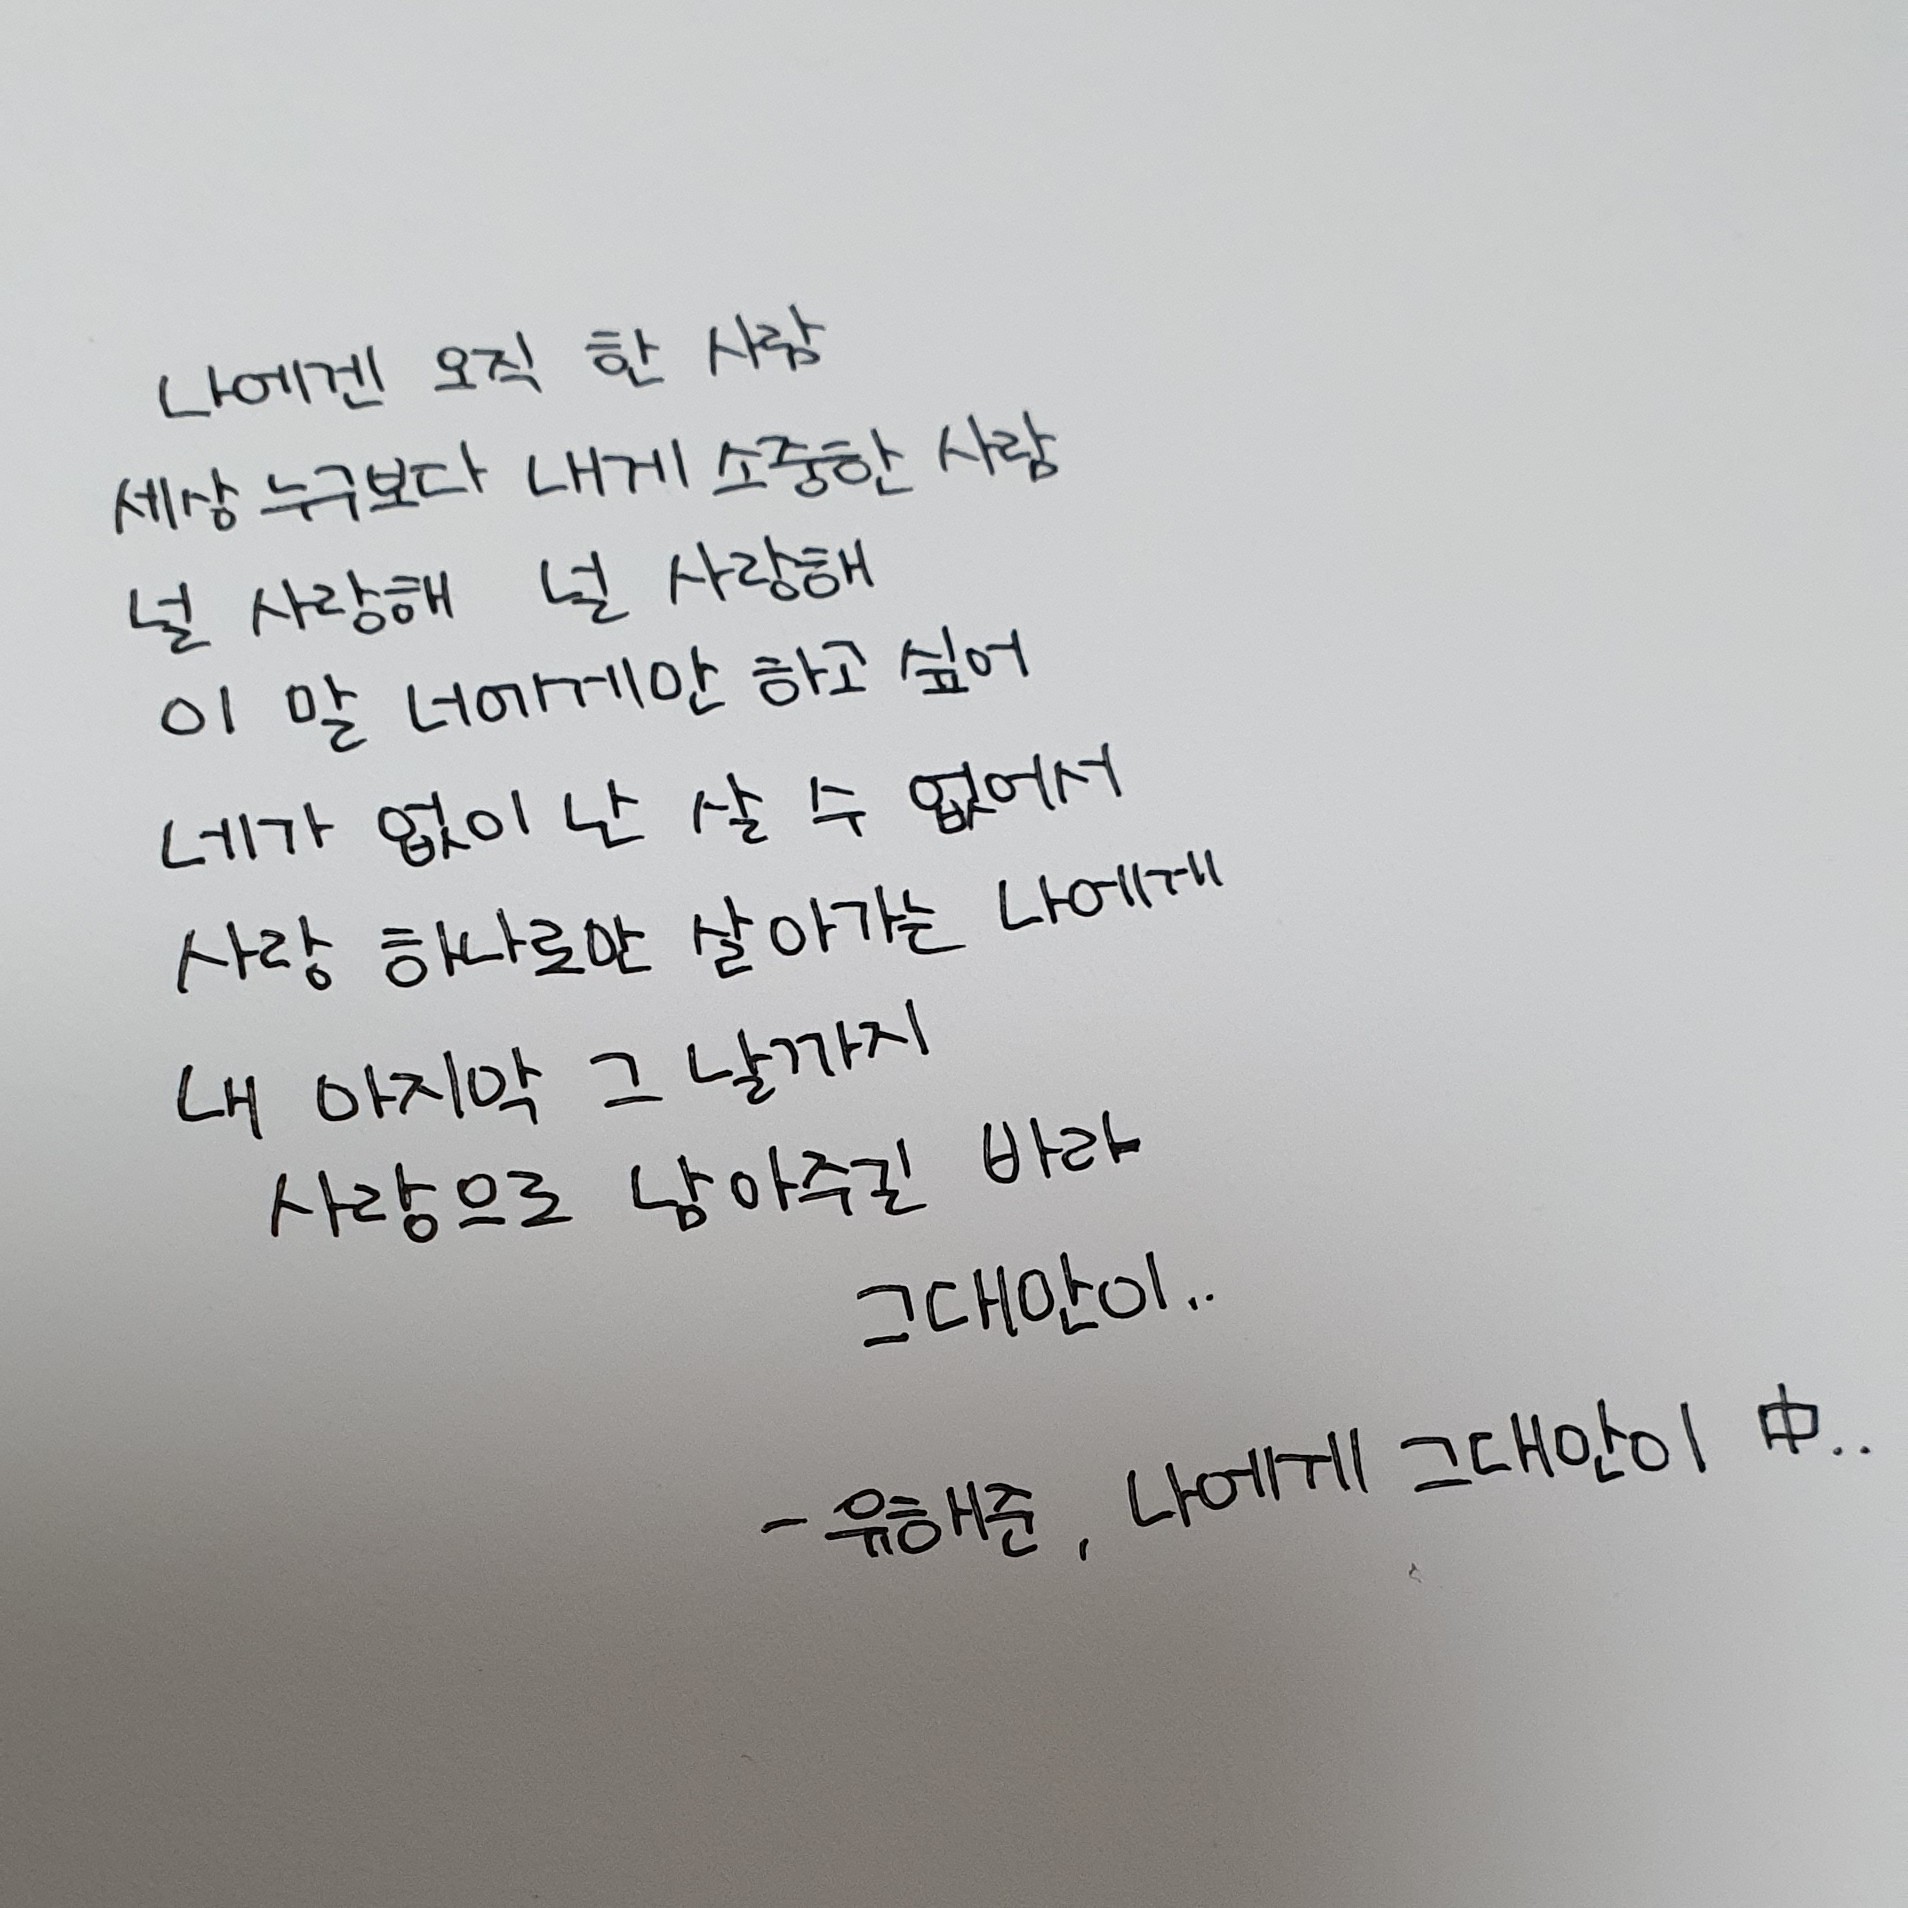 나에겐 오직 한 사람
세상 누구보다 내게 소중한 사람
널 사랑해 널 사랑해
이 말 너에게만 하고 싶어
네가 없이 난 살 수 없어서
사랑 하나로만 살아가는 나에게
내 마지막 그 날까지
사랑으로 남아주길 바라
그대만이..
- 유해준, 나에게 그대만이 中..